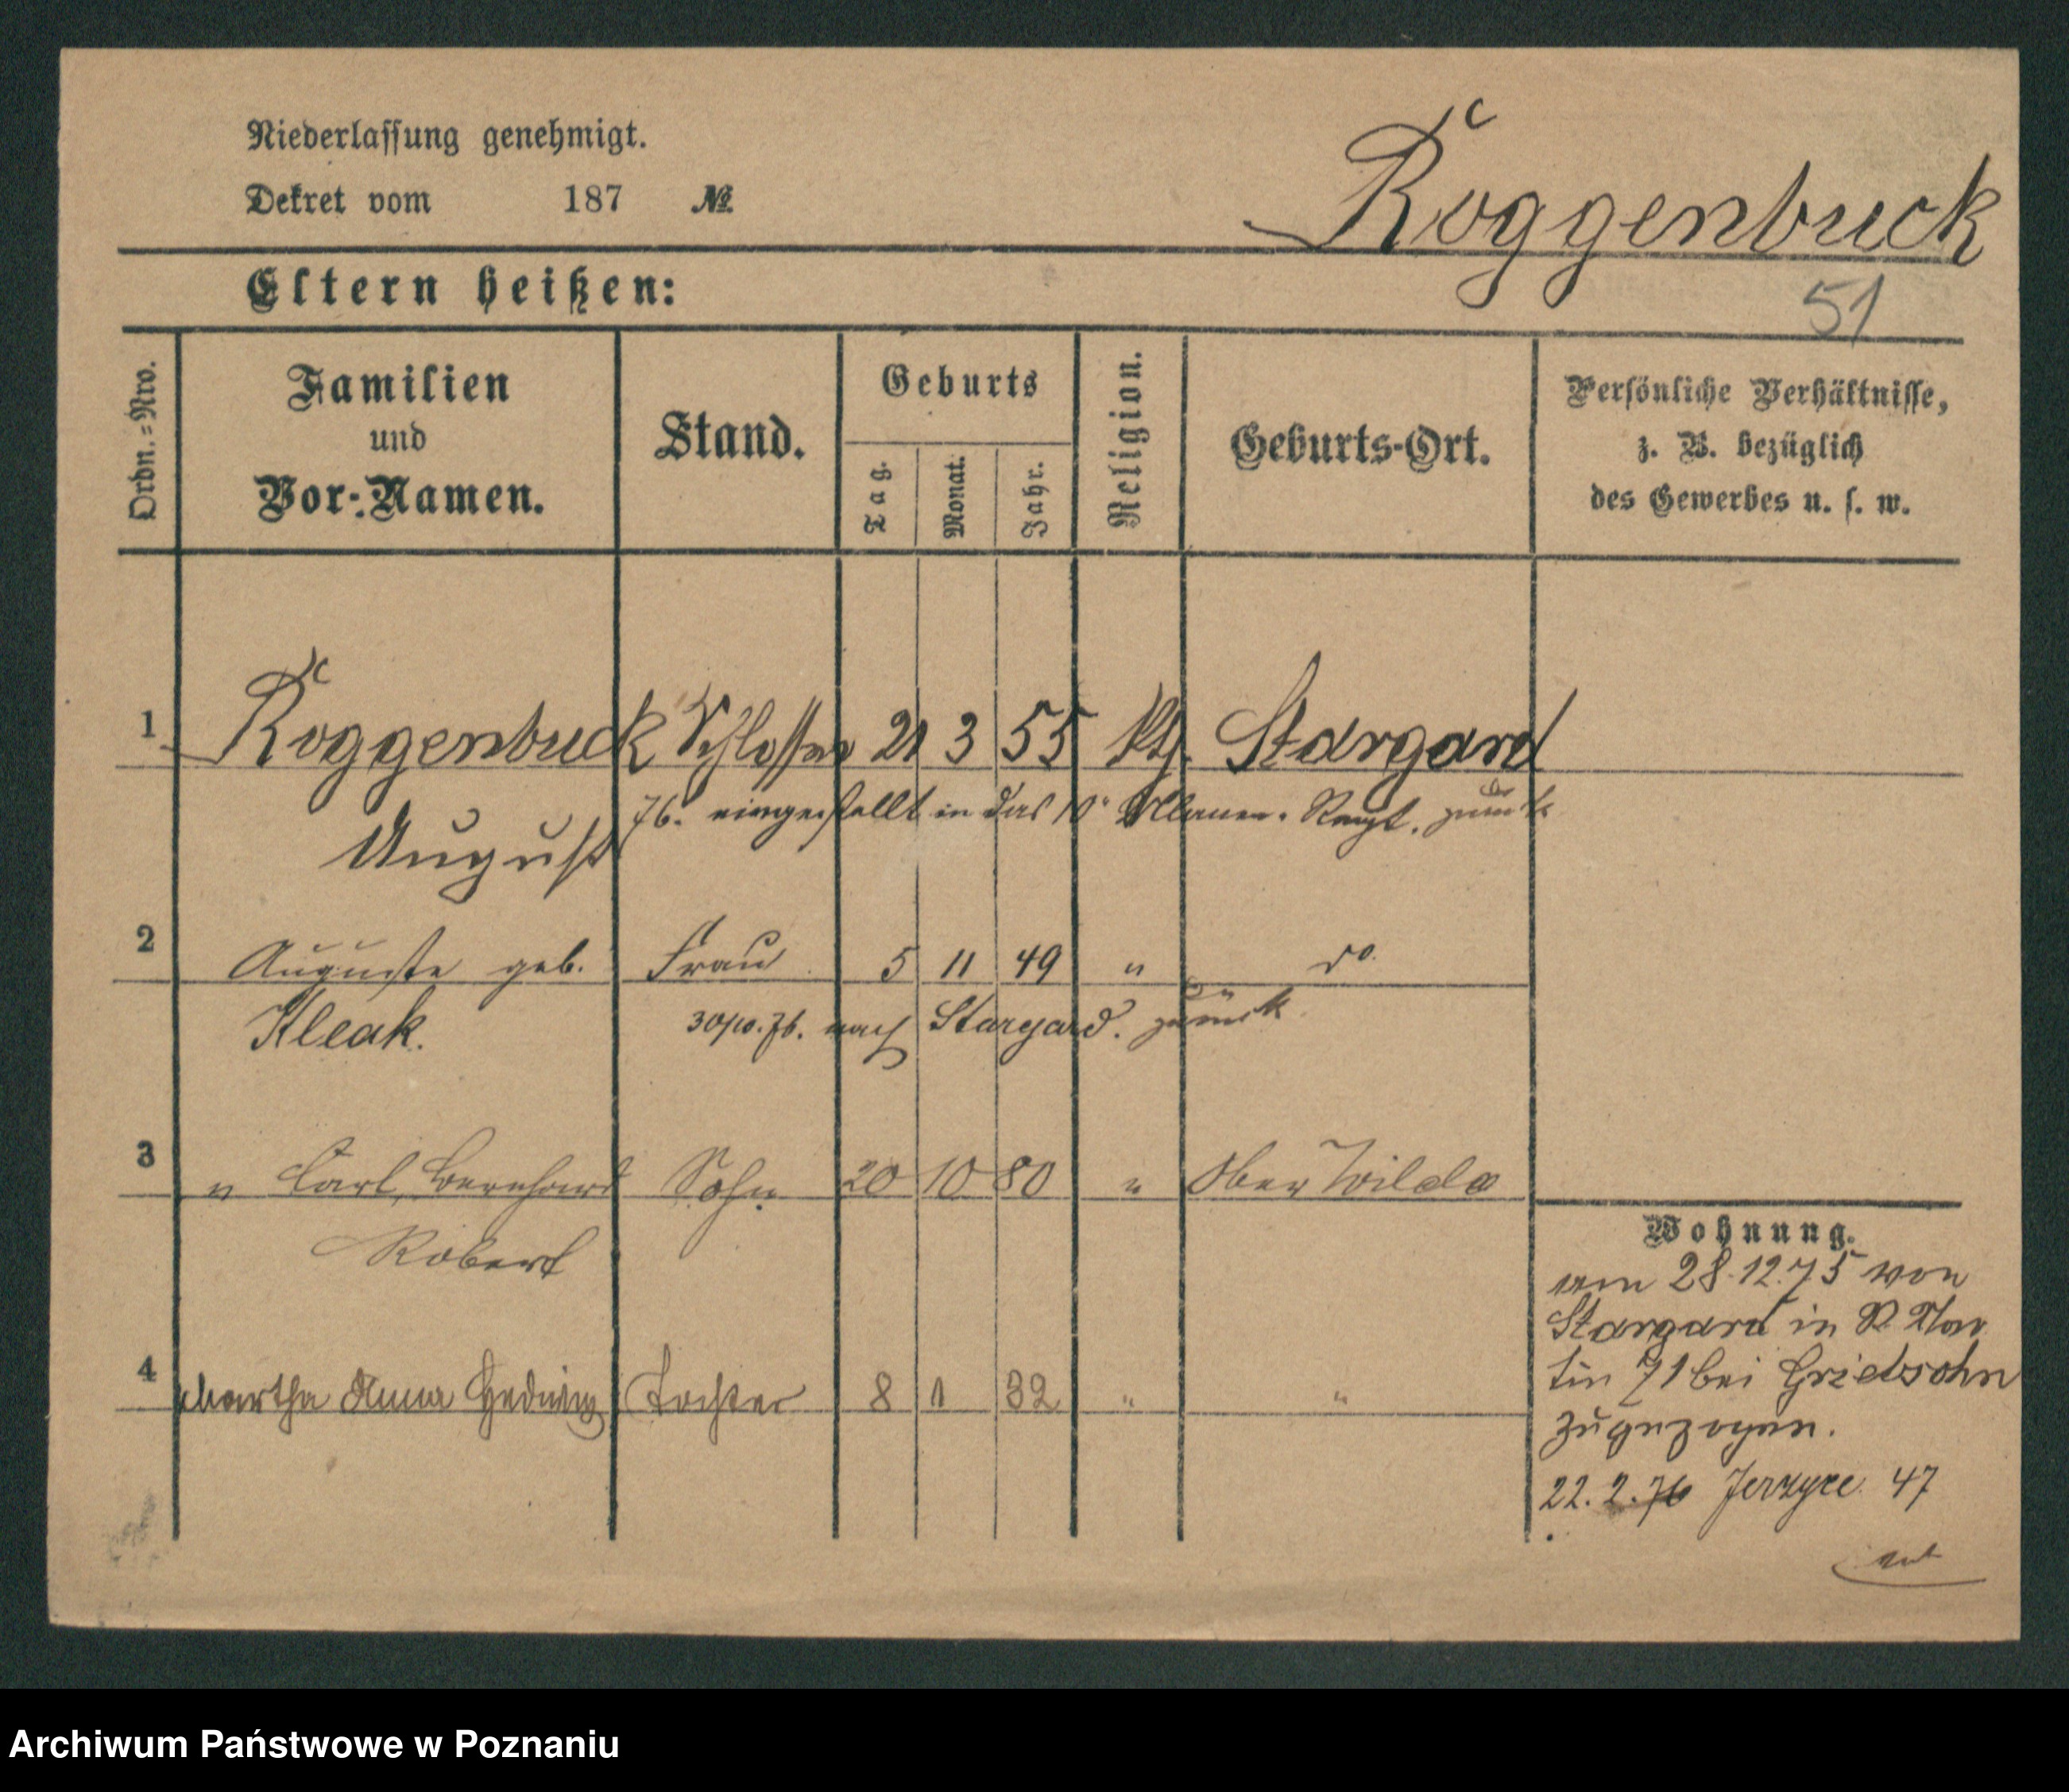 Niederlassung genehmigt.
Dekret vom 187 №
Roggenbuck
Eltern heißen:
51
Ordn.=Nro.
Familien
und
Vor-Namen.
Stand.
Geburts
Tag.
Monat.
Jahr.
Religion.
Geburts-Ort.
Persönliche Verhältnisse,
z. B. bezüglich
des Gewerbes u. s. w.
1 Roggenbuck Schlosser 21 3 55 Stargard
76. eingestellt in das 10' Ulanen-Regt. zurück
August
2 Auguste geb. Frau 5 11 49 " do.
Kleak. 30/10.76. nach Stargard. zurück
3 " Carl, Bernhard Sohn 20 10 80 " Ober Wilda
Robert
Wohnung.
am 28.12.75 von
Stargard in St. Mar
tin 71 bei Grietsohn
zugezogen.
4 Martha Anna Hedwig Tochter 8 1 32 " "
22.2.76 Jerzyce 47
Archiwum Państwowe w Poznaniu